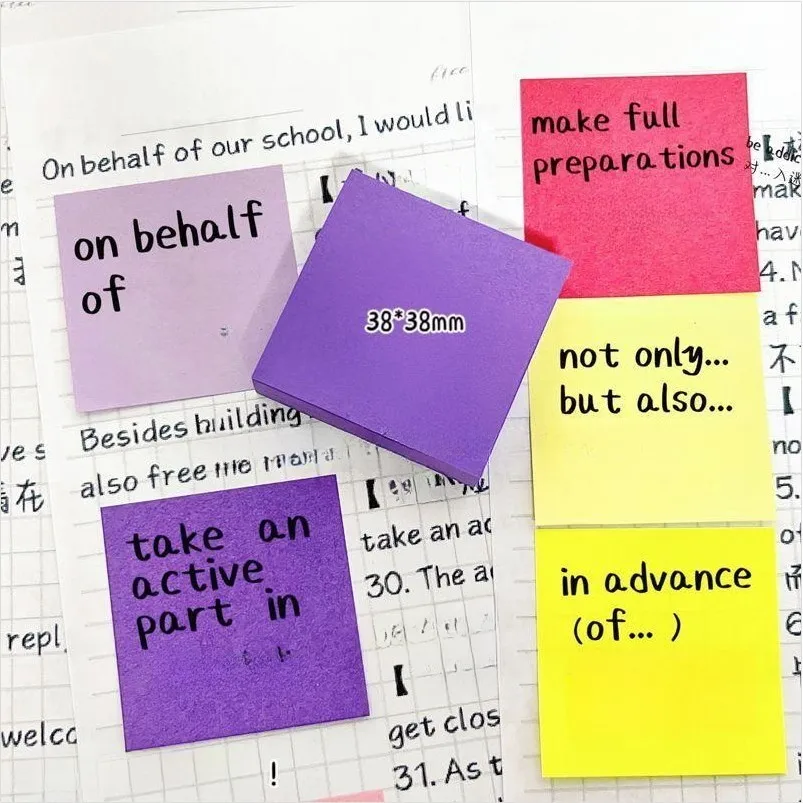 On behalf of our school, I would li
on behalf
of
38*38mm
Besides building
also free
take an
active
part in
take an ac
30. The a
get clos
31. As t
!
repl
welcc
make full
preparations
not only...
but also...
in advance
(of... )
be addic
对…入迷
mak
hav
4. N
a f
不
no
5.